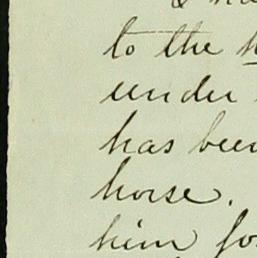 to the
under
has been
horse.
him for